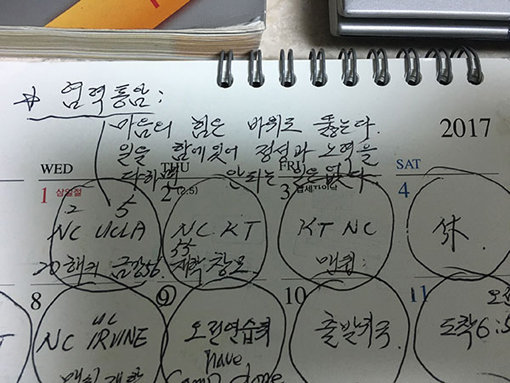 ☆ 염력통암:
마음의 힘은 바위로 뚫는다.
일을 함에 있어 정성과 노력을
다하면 안되는 일은 없다.
2017
WED THU FRI SAT
1 삼일절 2 (2.5) 3 납세자의날 4
2 5
NC UCLA NC KT KT NC 休.
8 9 10 11
NC UC IRVINE 오전연습휴 출발귀국 도착6:5
have
Camp done